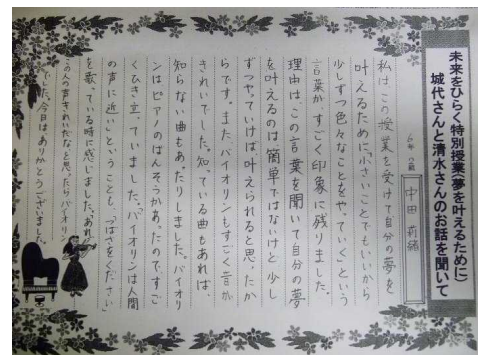 未来をひらく特別授業(夢を叶えるために)
城代さんと清水さんのお話を聞いて
6年 2組 中田 莉緒
私は、この授業を受けて自分の夢を
叶えるために「小さいことでもいいから
少しずつ色々なことをや、ていく」という
言葉が、すごく印象に残りました。
理由は、この言葉を聞いて自分の夢
を叶えるのは簡単ではないけど少し
ずつや、ていけば叶えられると思、たか
らです。またバイオリンもすごく音が
きれいでした。知、ている曲もあれば
知らない曲もあ、たりしました。バイオリ
ンはピアノのばんそうがあ、たのですご
くひき立、ていました。「バイオリンは人間
の声に近い」ということも、「つばさをください」
を歌、ている時に感じました。「あれ、
この人の声きれいだな」と思、たらバイオリン
でした。今日はありがとうございました。